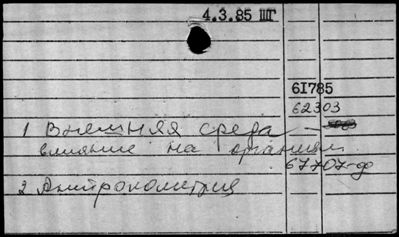 4.3.85 ШГ
6I785
62303
1 Внешняя среда —
влияние на организм
67707-ф
2 Антропометрия